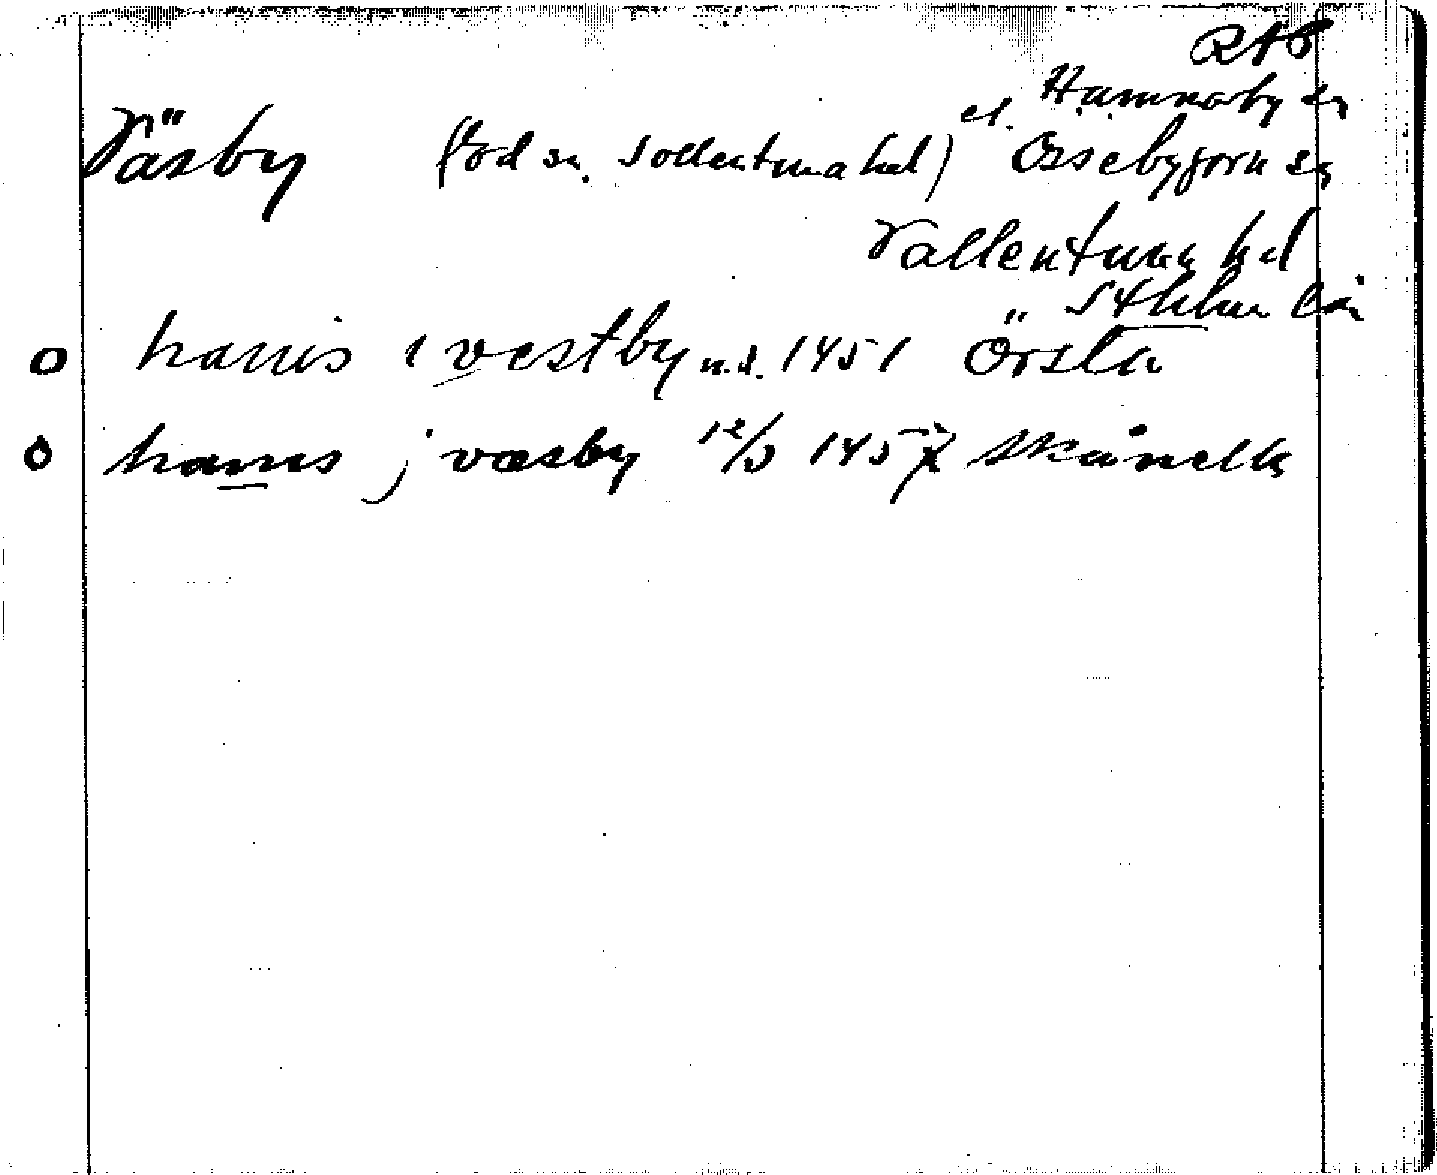 RAP
Väsby (Ed sn. Sollentuna hd) el. Hammarby sn
Össebygarn sn
Vallentuna hd
Sthlms län
o hanis i vestby u.d. 1451 Örsta
o hanis j væsby 12/3 1457 Skånella